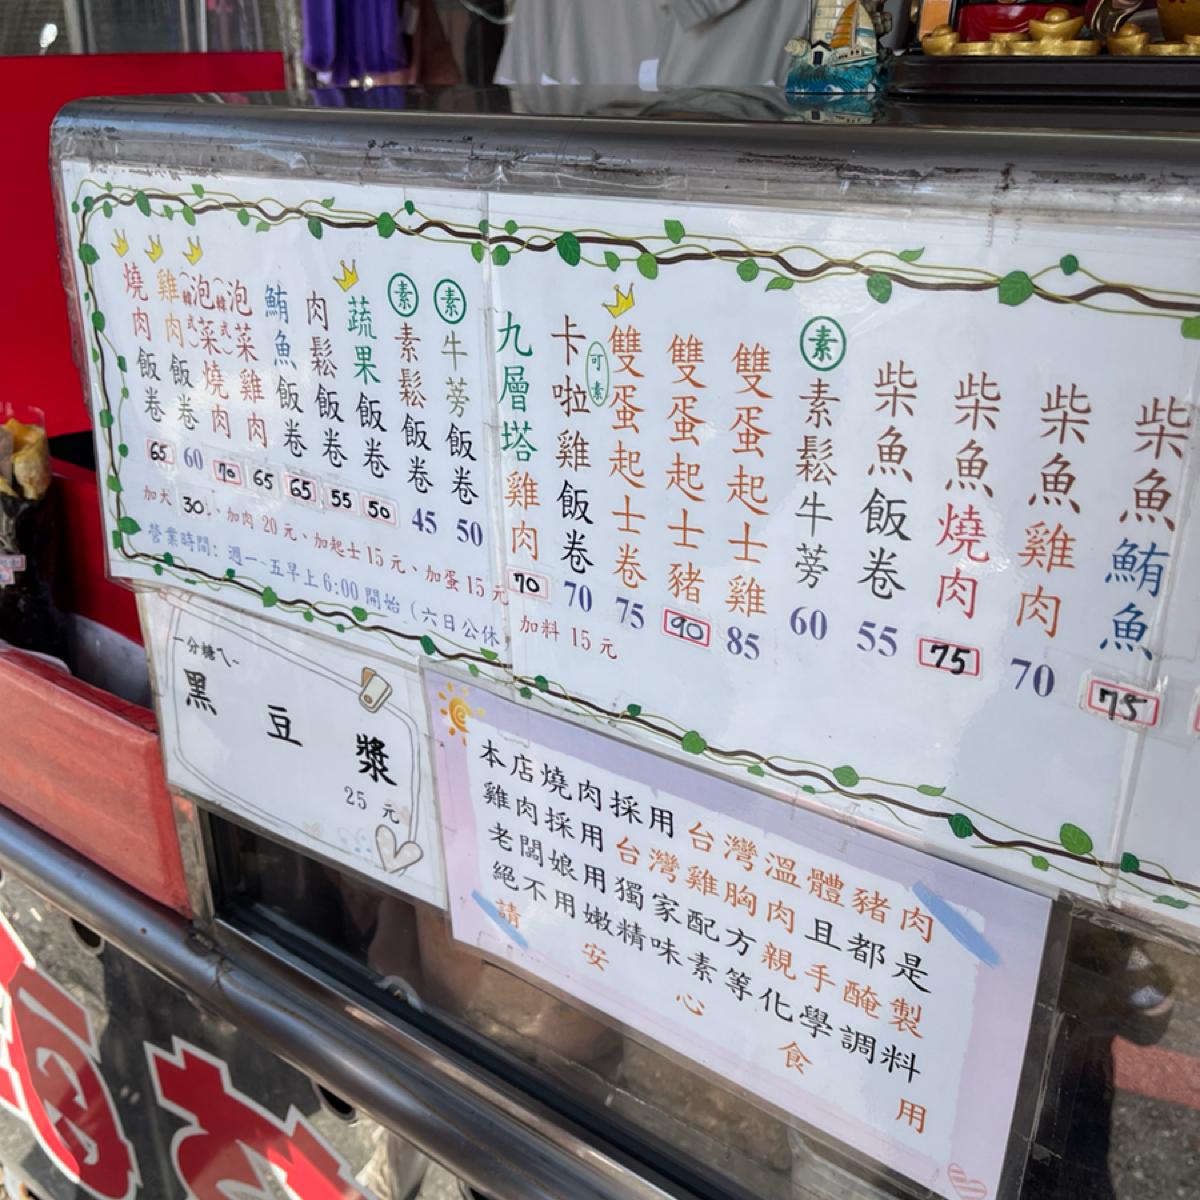 燒肉飯卷 65
雞肉飯卷 60
(韓式)泡菜燒肉 70
(韓式)泡菜雞肉 65
鮪魚飯卷 65
肉鬆飯卷 55
蔬果飯卷 50
素 素鬆飯卷 45
素 牛蒡飯卷 50
加大 30、加肉 20 元、加起士 15 元、加蛋 15 元
營業時間：週一~五早上 6:00 開始（六日公休
九層塔雞肉 70
卡啦雞飯卷 70
可素 雙蛋起士卷 75
雙蛋起士豬 90
雙蛋起士雞 85
素 素鬆牛蒡 60
柴魚飯卷 55
柴魚燒肉 75
柴魚雞肉 70
柴魚鮪魚 75
加料 15 元
一分糖ㄟ~
黑豆漿
25 元
本店燒肉採用台灣溫體豬肉
雞肉採用台灣雞胸肉且都是
老闆娘用獨家配方親手醃製
絕不用嫩精味素等化學調料
請安心食用